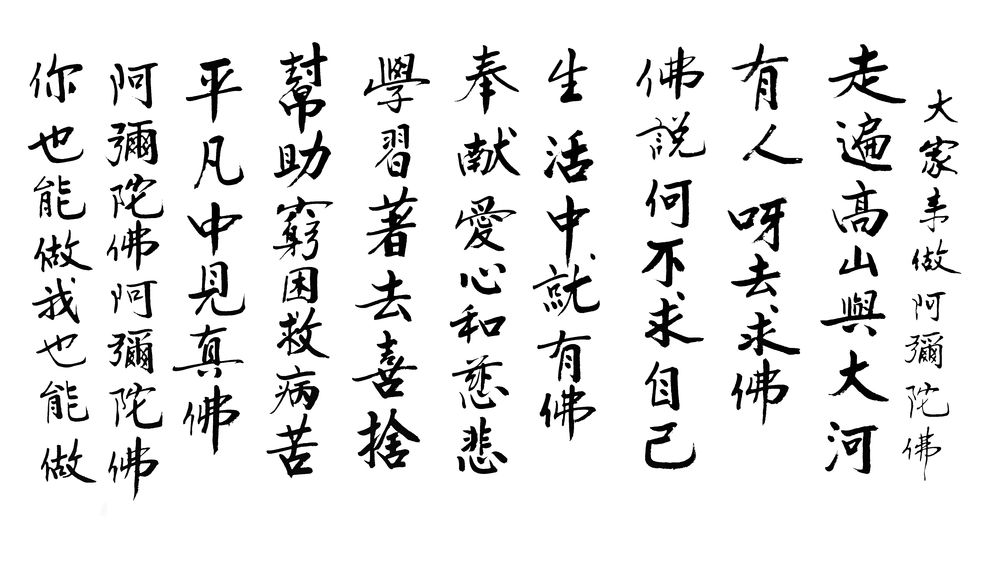 大家来做阿彌陀佛
走遍高山與大河
有人呀去求佛
佛説何不求自己
生活中就有佛
奉献愛心和慈悲
學習著去喜捨
幫助窮困救病苦
平凡中見真佛
阿彌陀佛阿彌陀佛
你也能做我也能做